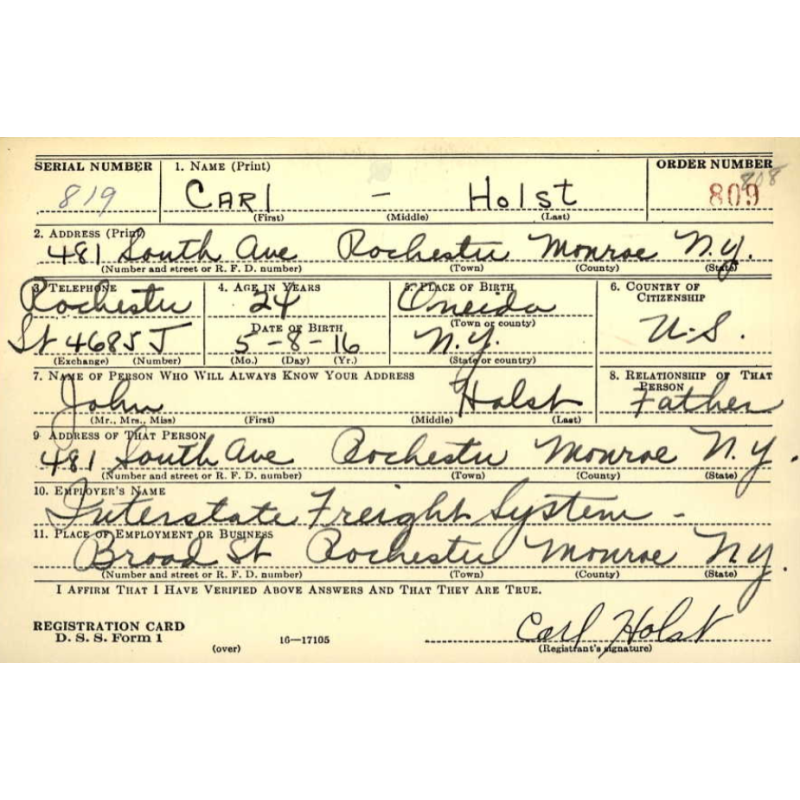 SERIAL NUMBER 1. NAME (Print) ORDER NUMBER
819 CARl – HolST 809 808
(First) (Middle) (Last)
2. ADDRESS (Print)
481 South Ave Rochester Monroe N.Y.
(Number and street or R. F. D. number) (Town) (County) (State)
3. TELEPHONE 4. AGE IN YEARS 5. PLACE OF BIRTH 6. COUNTRY OF CITIZENSHIP
Rochester 24 Oneida
(Town or county)
DATE OF BIRTH U-S.
St 4685 J 5-8-16 N.Y.
(Exchange) (Number) (Mo.) (Day) (Yr.) (State or country)
7. NAME OF PERSON WHO WILL ALWAYS KNOW YOUR ADDRESS 8. RELATIONSHIP OF THAT PERSON
John Holst Father
(Mr., Mrs., Miss) (First) (Middle) (Last)
9 ADDRESS OF THAT PERSON
481 South Ave Rochester Monroe N.Y.
(Number and street or R. F. D. number) (Town) (County) (State)
10. EMPLOYER'S NAME
Interstate Freight System -
11. PLACE OF EMPLOYMENT OR BUSINESS
Broad St Rochester Monroe NY.
(Number and street or R. F. D. number) (Town) (County) (State)
I AFFIRM THAT I HAVE VERIFIED ABOVE ANSWERS AND THAT THEY ARE TRUE.
REGISTRATION CARD Carl Holst
D. S. S. Form 1 16—17105
(over) (Registrant's signature)